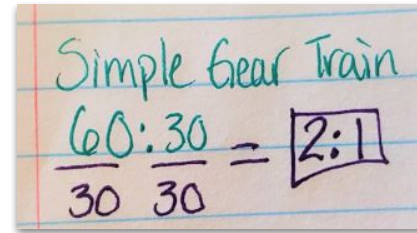 Simple Gear Train
60:30 = 2:1
30 30